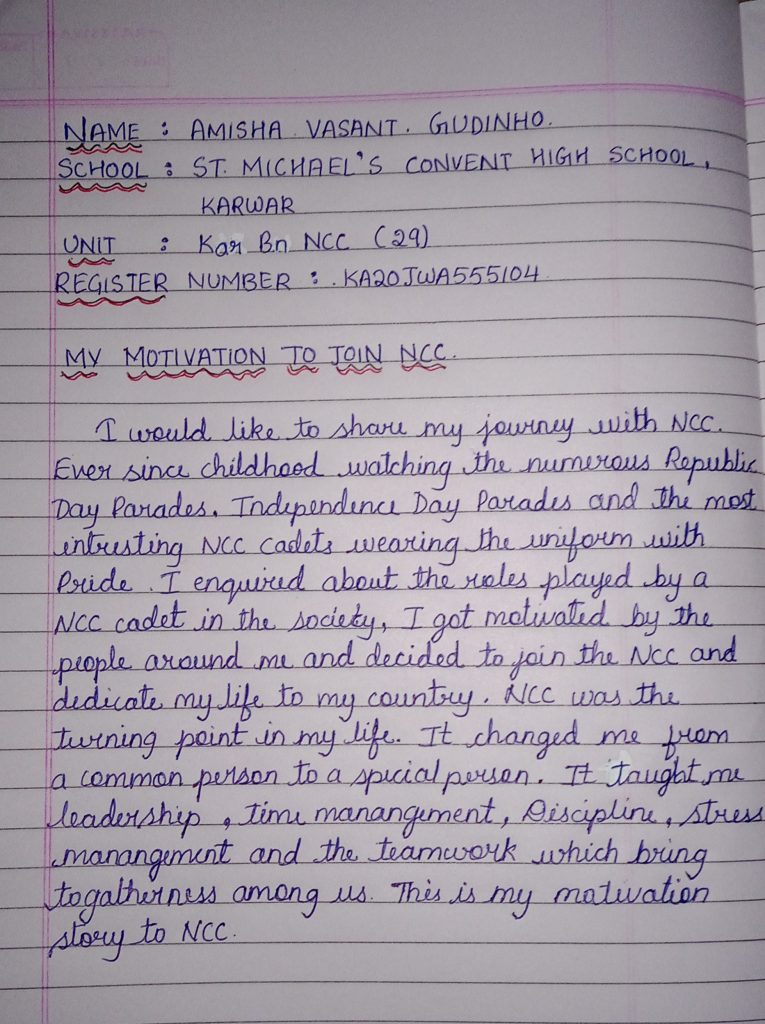 NAME : AMISHA VASANT. GUDINHO.
SCHOOL : ST. MICHAEL'S CONVENT HIGH SCHOOL,
KARWAR
UNIT : Kar Bn NCC (29)
REGISTER NUMBER : KA20JWA555104
MY MOTIVATION TO JOIN NCC.
I would like to share my journey with NCC.
Ever since childhood watching the numerous Republic
Day Parades, Independence Day Parades and the most
intresting NCC cadets wearing the uniform with
Pride. I enquired about the roles played by a
NCC cadet in the society, I got motivated by the
people around me and decided to join the NCC and
dedicate my life to my country. NCC was the
turning point in my life. It changed me from
a common person to a special person. It taught me
leadership, time manangement, Discipline, stress
manangement and the teamwork which bring
togatherness among us. This is my motivation
story to NCC.